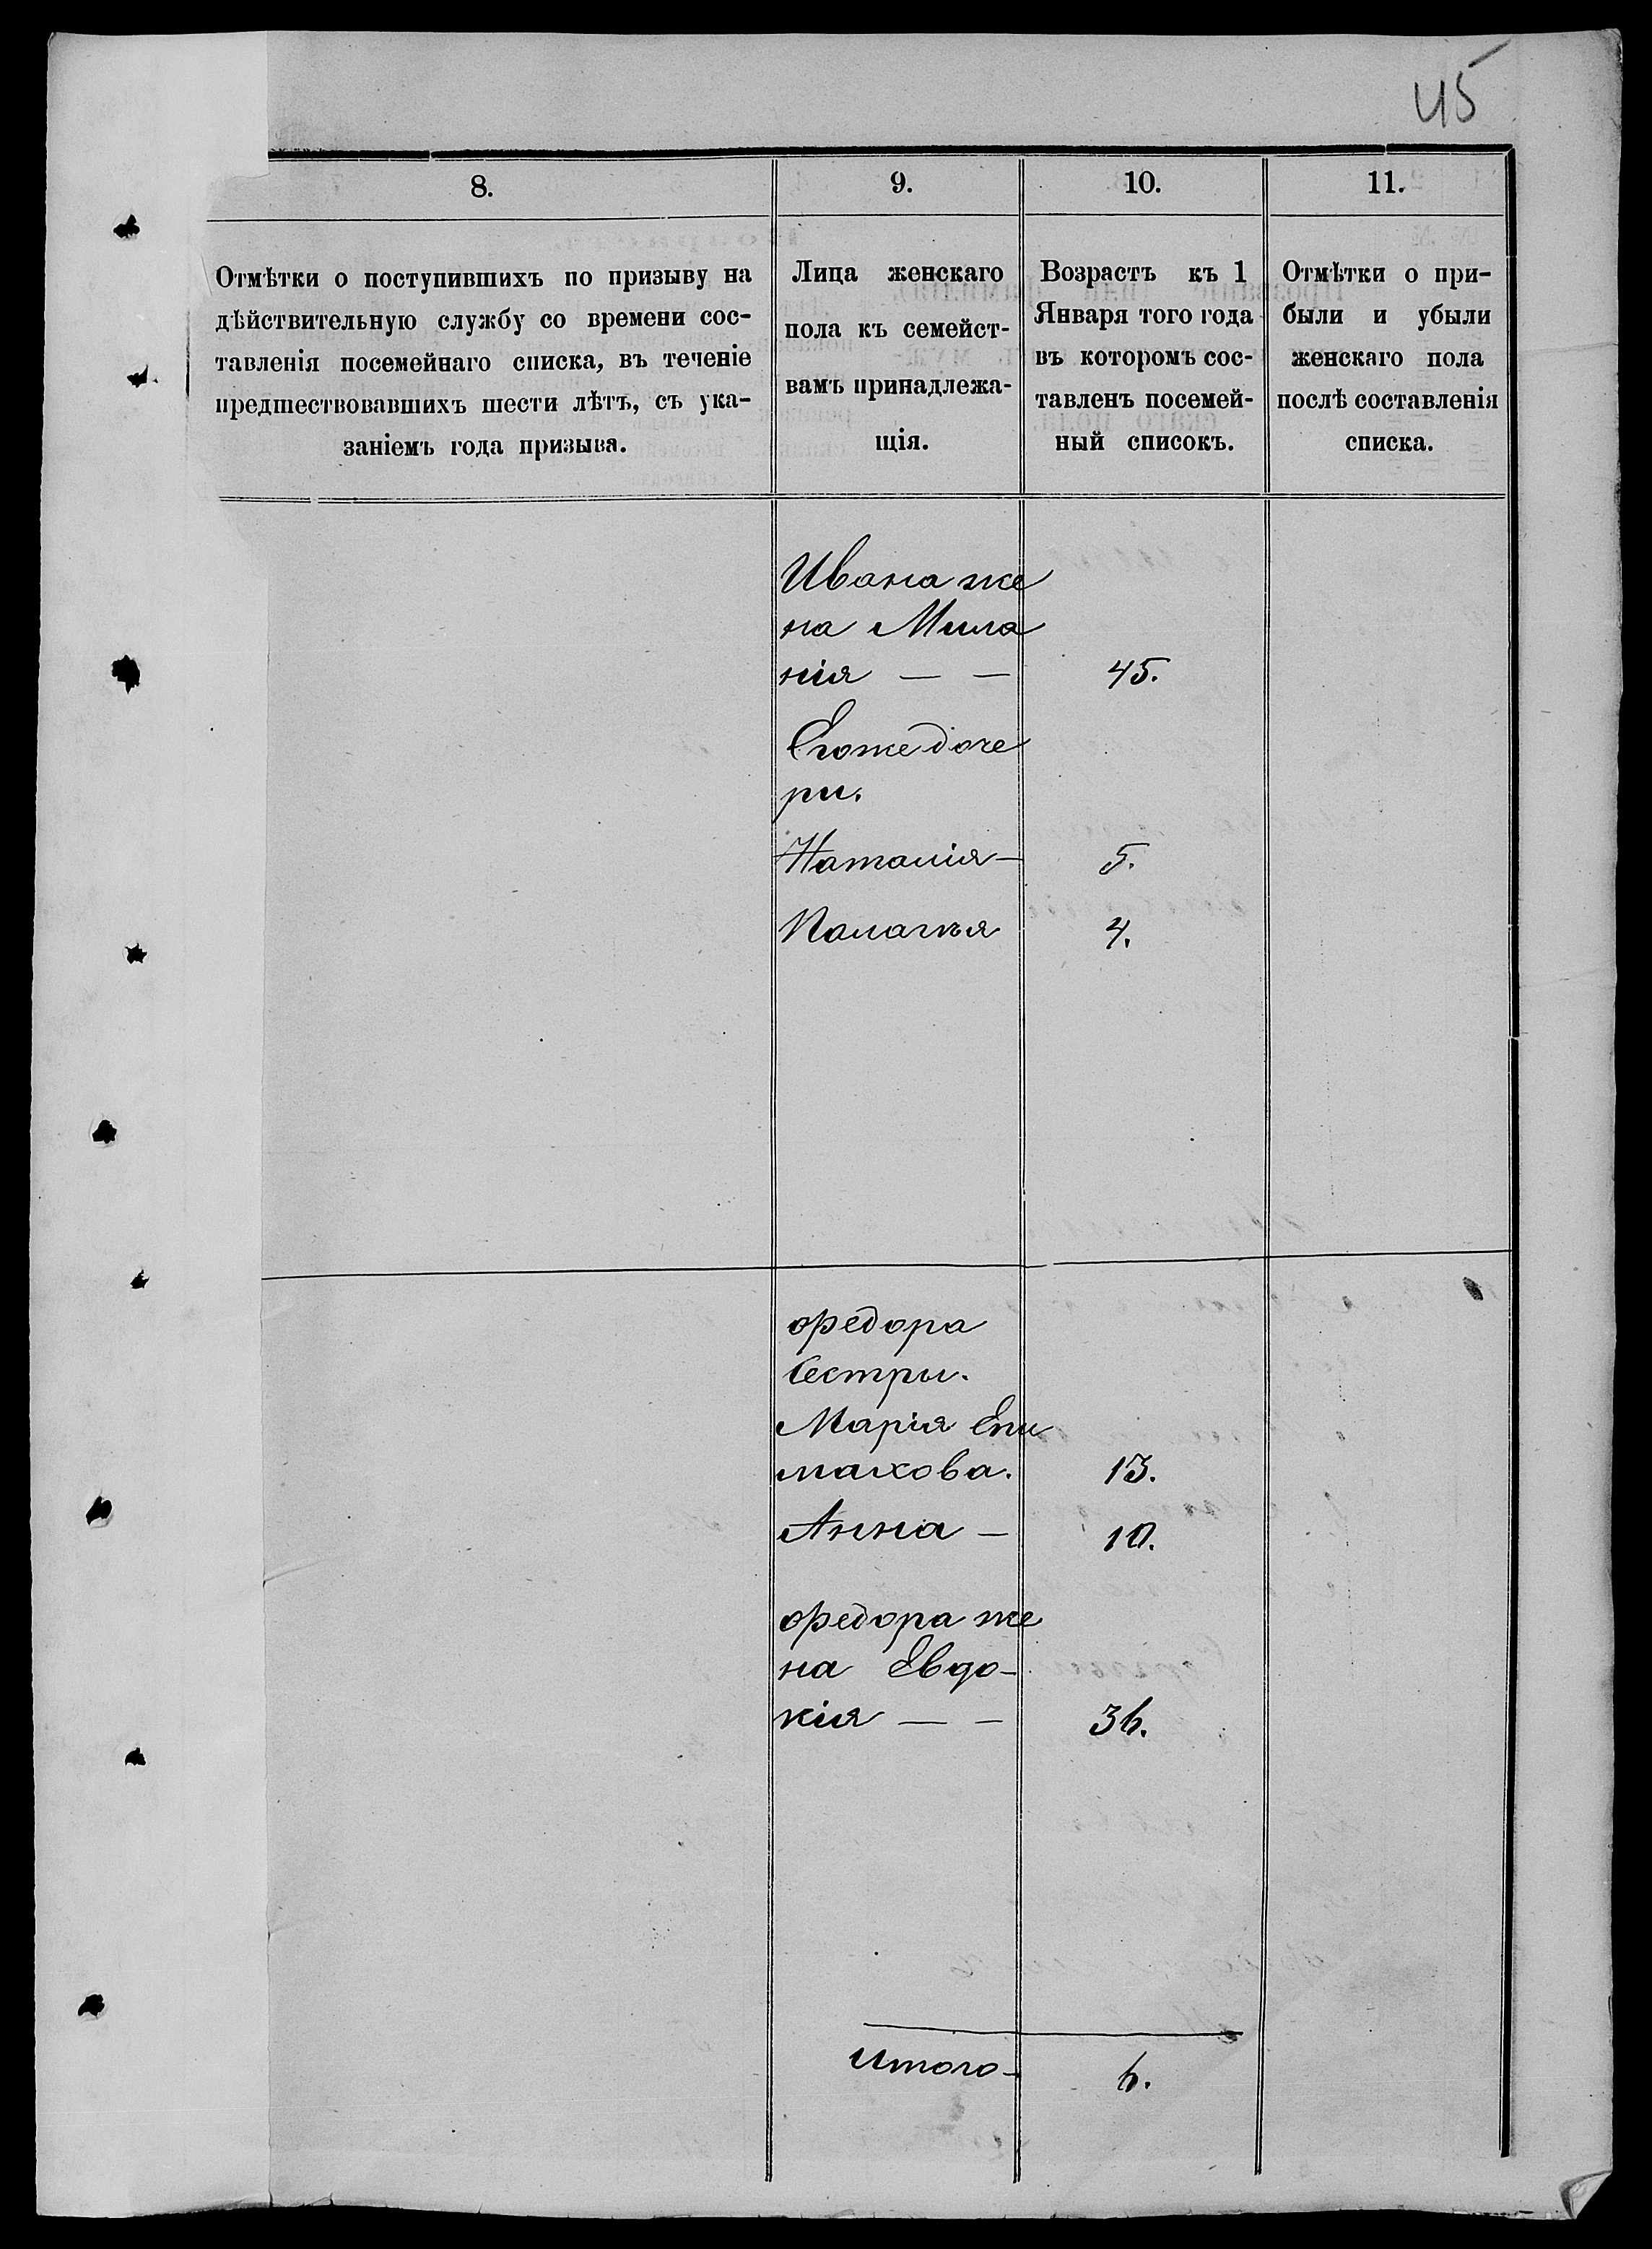 45
8.
9.
10.
11.
Отмѣтки о поступившихъ по призыву на
дѣйствительную службу со времени сос-
тавленія посемейнаго списка, въ теченіе
предшествовавшихъ шести лѣтъ, съ ука-
заніемъ года призыва.
Лица женскаго
пола къ семейст-
вамъ принадлежа-
щія.
Возрастъ къ 1
Января того года
въ которомъ сос-
тавленъ посемей-
ный списокъ.
Отмѣтки о при-
были и убыли
женскаго пола
послѣ составленія
списка.
Ивана же
на Мила
нія — — 45.
Егоже доче
ри.
Наталія — 5.
Палагья 4.
Ѳедора
Сестры.
Марія Епи
махова. 13.
Анна — 10.
Ѳедора же
на Евдо-
кія — — 36.
Итого — 6.